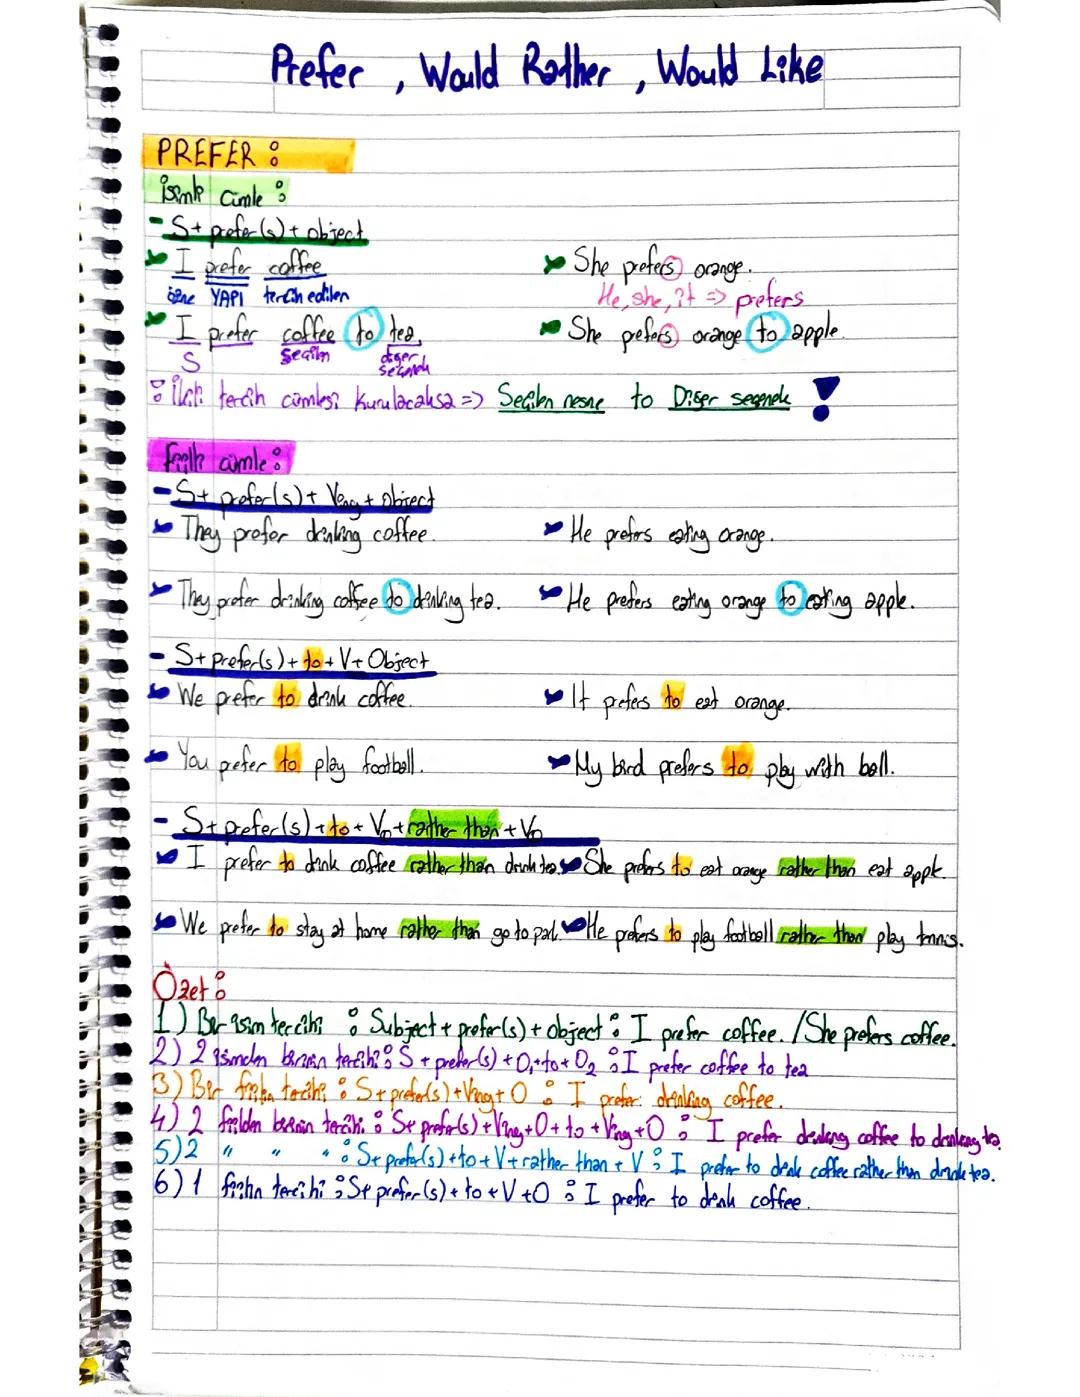 Prefer, Would Rather, Would Like
PREFER :
İsimli Cümle :
- S + prefer(s) + object
I prefer coffee
She prefers orange.
özne YAPI tercih edilen
He, she, it => prefers
I prefer coffee to tea
She prefers orange to apple.
S Seçilen diğer seçenek
: İkili tercih cümlesi kurulacaksa => Seçilen nesne to Diğer seçenek !
Fiilli cümle :
- S + prefer(s) + Ving + object
They prefer drinking coffee.
He prefers eating orange.
They prefer drinking coffee to drinking tea.
He prefers eating orange to eating apple.
- S + prefer(s) + to + V + Object
We prefer to drink coffee.
It prefers to eat orange.
You prefer to play football.
My bird prefers to play with ball.
- S + prefer(s) + to + V0 + rather than + V0
I prefer to drink coffee rather than drink tea.
She prefers to eat orange rather than eat apple.
We prefer to stay at home rather than go to park.
He prefers to play football rather than play tennis.
Özet :
1) Bir isim tercihi : Subject + prefer(s) + object : I prefer coffee. / She prefers coffee.
2) 2 isimden birinin tercihi : S + prefer(s) + O1 + to + O2 : I prefer coffee to tea
3) Bir fiilin tercihi : S + prefer(s) + Ving + O : I prefer drinking coffee.
4) 2 fiilden birinin tercihi : S + prefer(s) + Ving + O + to + Ving + O : I prefer drinking coffee to drinking tea.
5) 2 " " " : S + prefer(s) + to + V + rather than + V : I prefer to drink coffee rather than drink tea.
6) 1 fiilin tercihi : S + prefer(s) + to + V + O : I prefer to drink coffee.